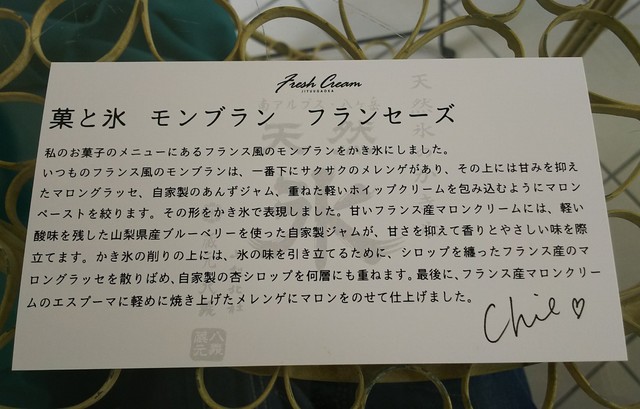 Fresh Cream
JIYUGAOKA
菓と氷　モンブラン　フランセーズ
私のお菓子のメニューにあるフランス風のモンブランをかき氷にしました。
いつものフランス風のモンブランは、一番下にサクサクのメレンゲがあり、その上には甘みを抑え
たマロングラッセ、自家製のあんずジャム、重ねた軽いホイップクリームを包み込むようにマロン
ペーストを絞ります。その形をかき氷で表現しました。甘いフランス産マロンクリームには、軽い
酸味を残した山梨県産ブルーベリーを使った自家製ジャムが、甘さを抑えて香りとやさしい味を際
立てます。 かき氷の削りの上には、氷の味を引き立てるために、シロップを纏ったフランス産のマ
ロングラッセを散りばめ、自家製の杏シロップを何層にも重ねます。最後に、フランス産マロンクリー
ムのエスプーマに軽めに焼き上げたメレンゲにマロンをのせて仕上げました。
Chie♡
天然氷
八義
蔵元